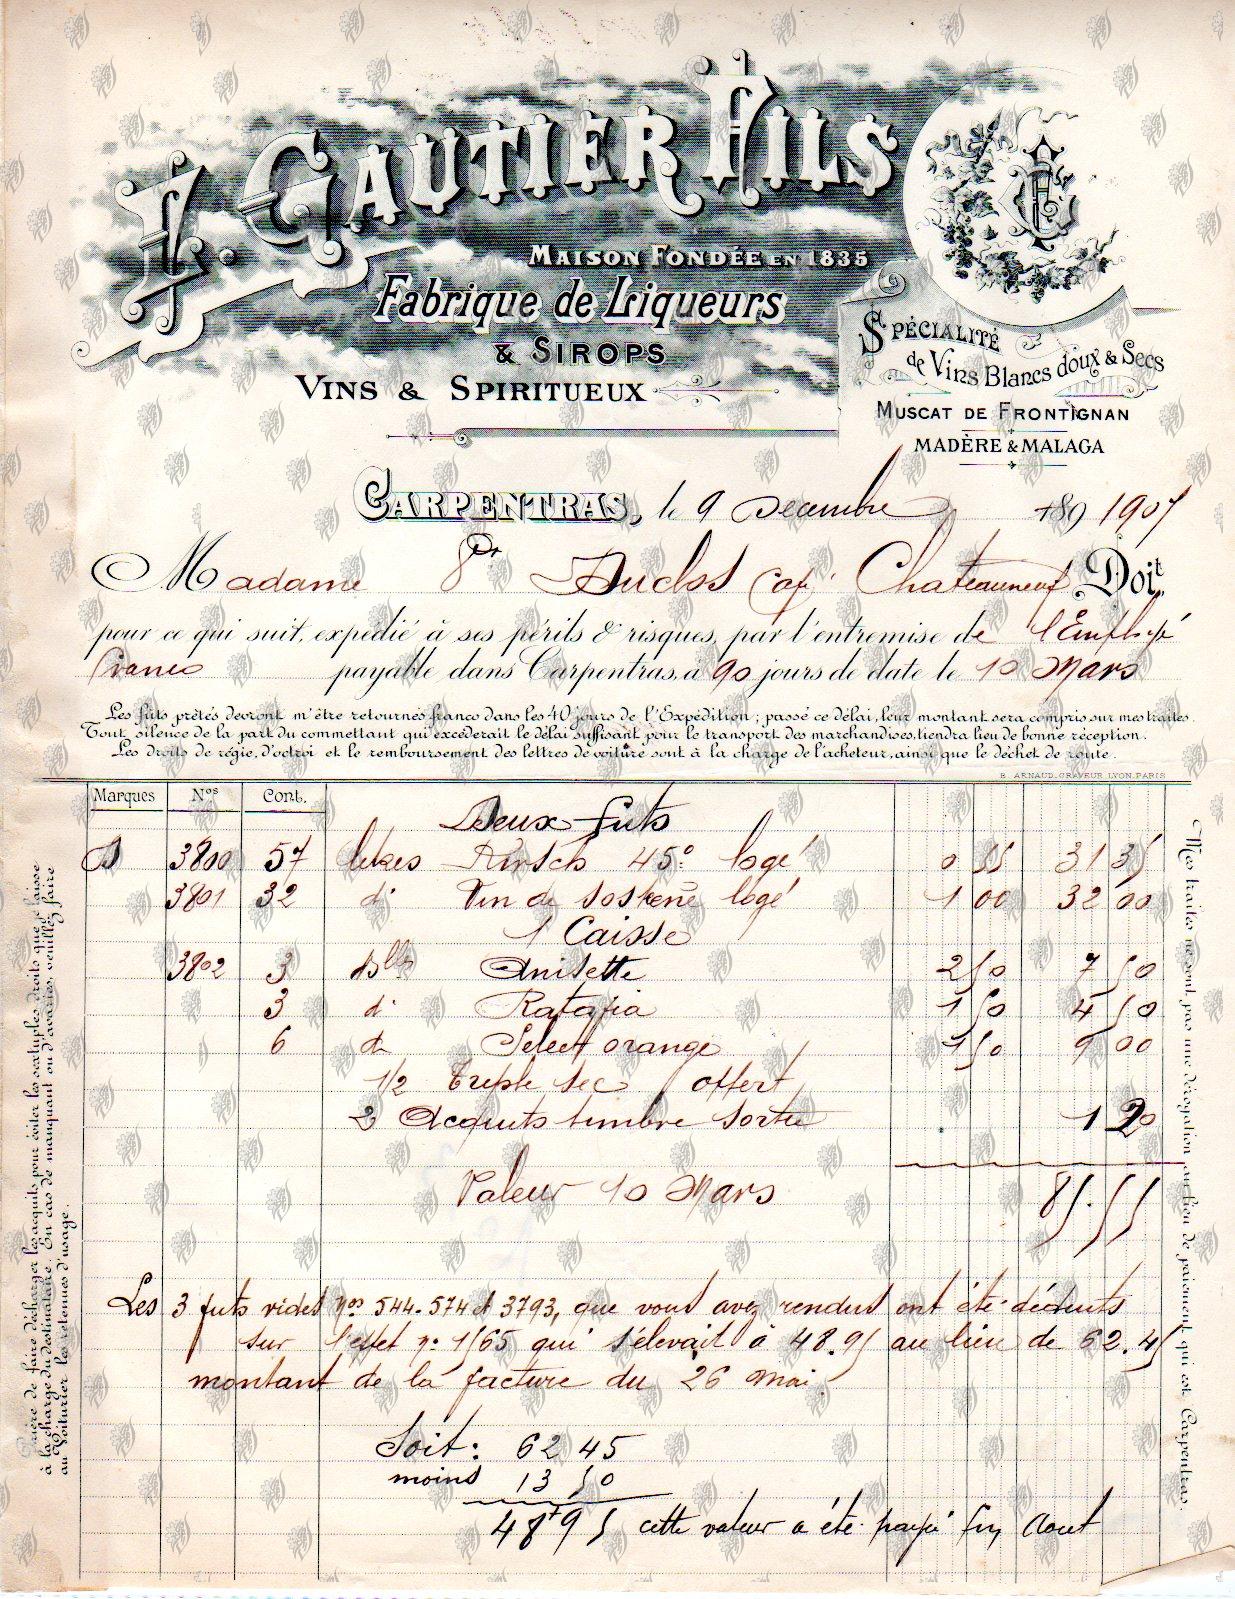 F. GAUTIER FILS
MAISON FONDÉE EN 1835
Fabrique de Liqueurs
& SIROPS
VINS & SPIRITUEUX
SPÉCIALITÉ
de Vins Blancs doux & Secs
MUSCAT DE FRONTIGNAN
MADÈRE & MALAGA
CARPENTRAS, le 9 Decembre 189 1907
Madame Duclos Châteauneuf Doit
pour ce qui suit, expédié à ses périls & risques, par l'entremise de l'Employé
franco payable dans Carpentras, à 90 jours de date le 10 Mars
Les fûts prêtés devront m'être retournés franco dans les 40 jours de l'Expédition; passé ce délai, leur montant sera compris sur mes traites.
Tout silence de la part du commettant qui excéderait le délai suffisant pour le transport des marchandises, tiendra lieu de bonne réception.
Les droits de régie, d'octroi et le remboursement des lettres de voiture sont à la charge de l'acheteur, ainsi que le déchet de route.
B. ARNAUD, GRAVEUR LYON, PARIS
Marques Nos Cont.
Deux fûts
D 3800 57 litres Kirsch 45° logé 0 55 31 35
3801 32 d° Vin de logé 1 00 32 00
1 Caisse
3802 3 Blles Anisette 2 50 7 50
3 d° Ratafia 1 50 4 50
6 d° Select orange 1 50 9 00
1/2 triple sec offert
2 Acquits timbre sortie 1 20
Valeur 10 Mars 85.55
Les 3 futs vides nos 544.574 et 3793, que vous avez rendus ont été déduits
sur l'effet n° 1565 qui s'élevait à 48.95 au lieu de 62.45
montant de la facture du 26 mai.
Soit: 62 45
moins 13 50
48f95 cette valeur a été payé fin Aout
Prière de faire décharger les acquits pour éviter les sextuples droits que je laisse
à la charge du destinataire. En cas de manquant ou d'avaries, veuillez faire
au Voiturier les retenues d'usage.
Mes traites ne sont pas une dérogation au lieu de paiement qui est Carpentras.